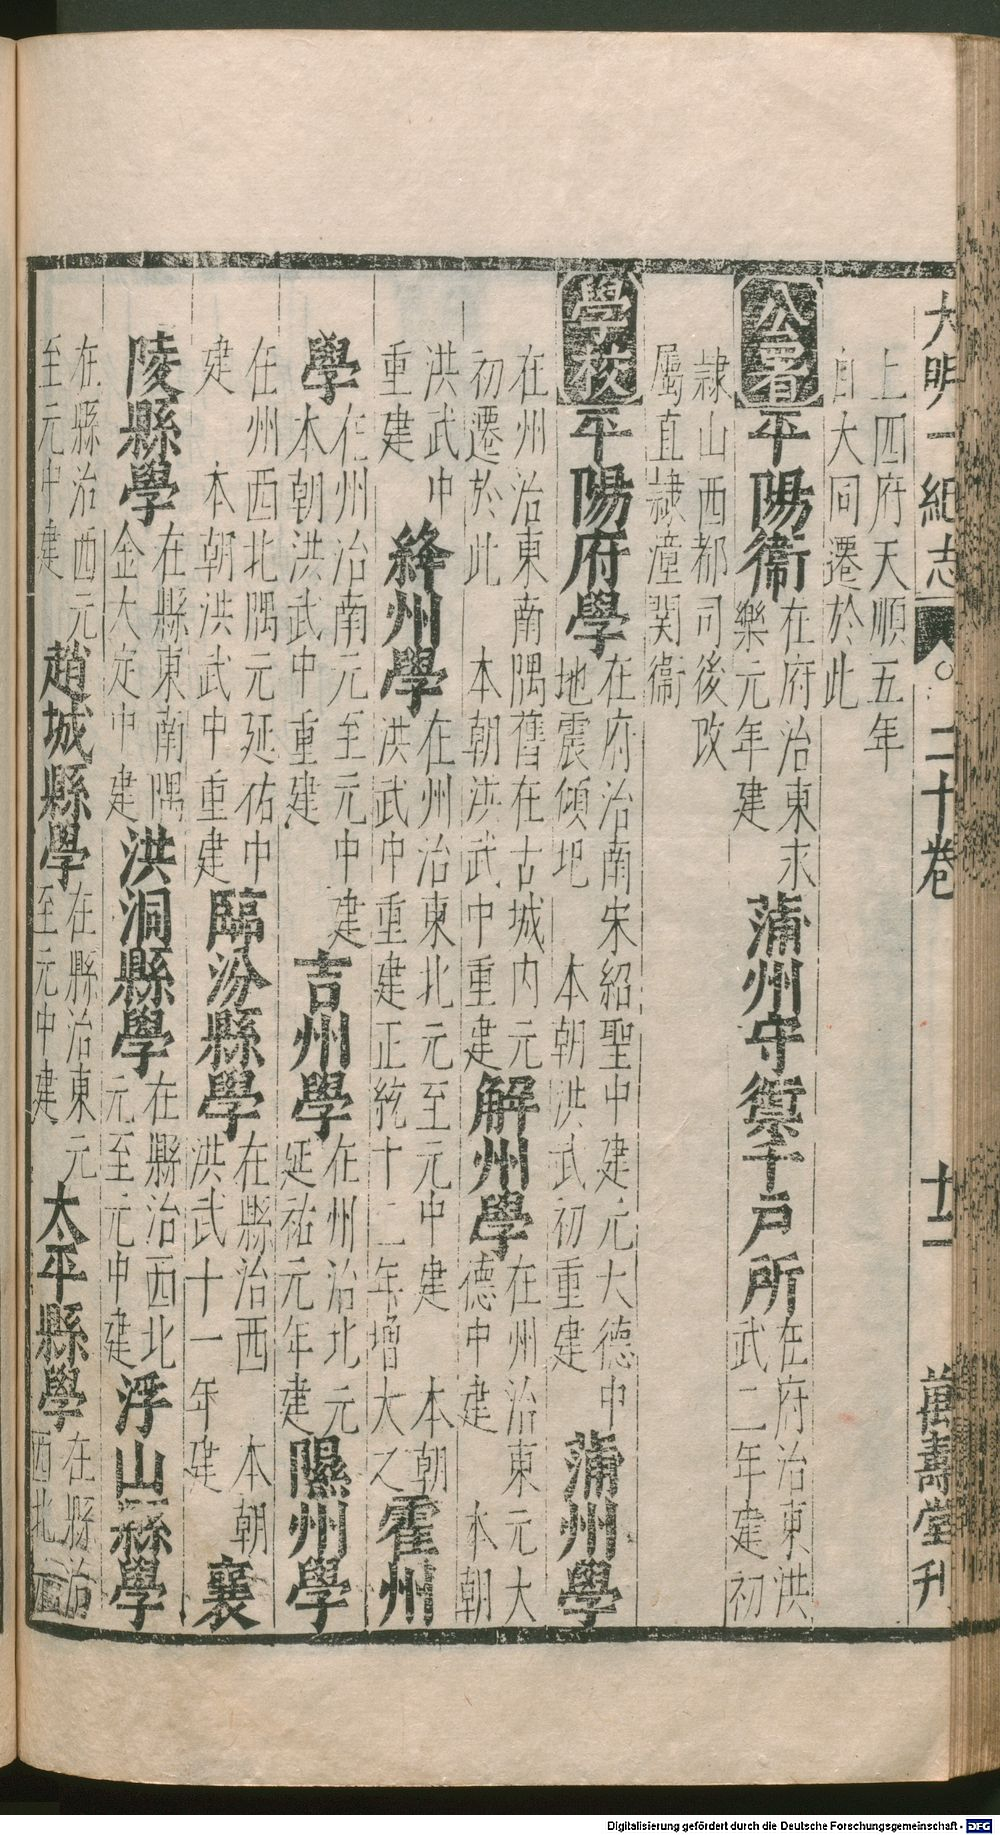 大明一統志 二十卷 十二 萬壽堂刊
上四府天順五年
自大同遷於此
公署平陽衞在府治東永
樂元年建
蒲州守禦千戶所在府治東洪
武二年建初
隷山西都司後改
屬直隷潼関衞
學校平陽府學在府治南宋紹聖中建元大德中
地震傾圮 本朝洪武初重建
蒲州學
在州治東南隅舊在古城内元
初遷於此 本朝洪武中重建
解州學在州治東元大
德中建 本朝
洪武中
重建
絳州學在州治東北元至元中建 本朝
洪武中重建正統十二年增大之
霍州
學在州治南元至元中建
本朝洪武中重建
吉州學在州治北元
延祐元年建
隰州學
在州西北隅元延佑中
建 本朝洪武中重建
臨汾縣學在縣治西 本朝
洪武十一年建
襄
陵縣學在縣東南隅
金大定中建
洪洞縣學在縣治西北
元至元中建
浮山縣學
在縣治西元
至元中建
趙城縣學在縣治東元
至元中建
太平縣學在縣治
西北元
Digitalisierung gefördert durch die Deutsche Forschungsgemeinschaft - DFG